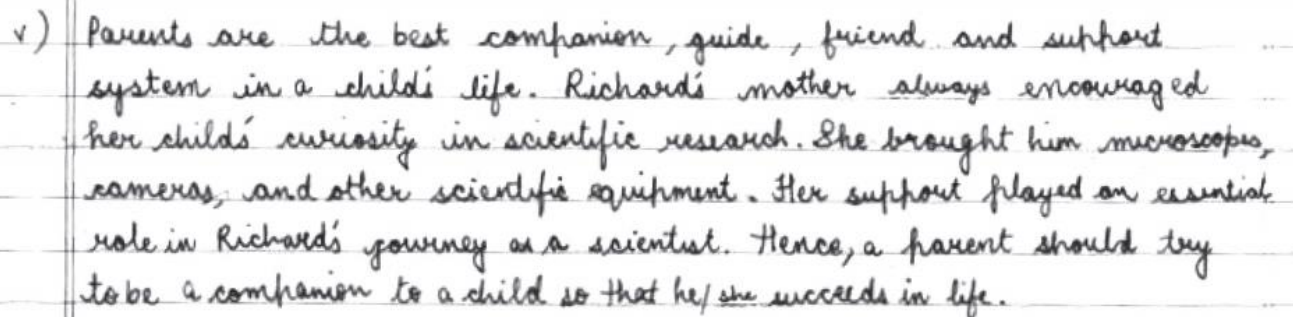 v) Parents are the best companion, guide, friend and support
system in a child's life. Richard's mother always encouraged
her child's curiosity in scientific research. She brought him microscopes,
cameras, and other scientific equipment. Her support played an essential
role in Richard's journey as a scientist. Hence, a parent should try
to be a companion to a child so that he/she succeeds in life.